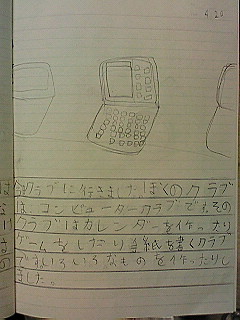 4.20
はクラブに行きました。ぼくのクラブ
は、コンピュータークラブです。その
クラブはカレンダーを作ったり
ゲームをしたり手紙を書くクラブ
でいろいろなものを作ったりし
ました。